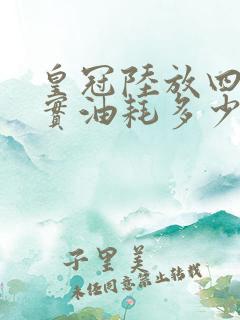 皇冠陸放四
實油耗多少
子里美
未经同意禁止转载